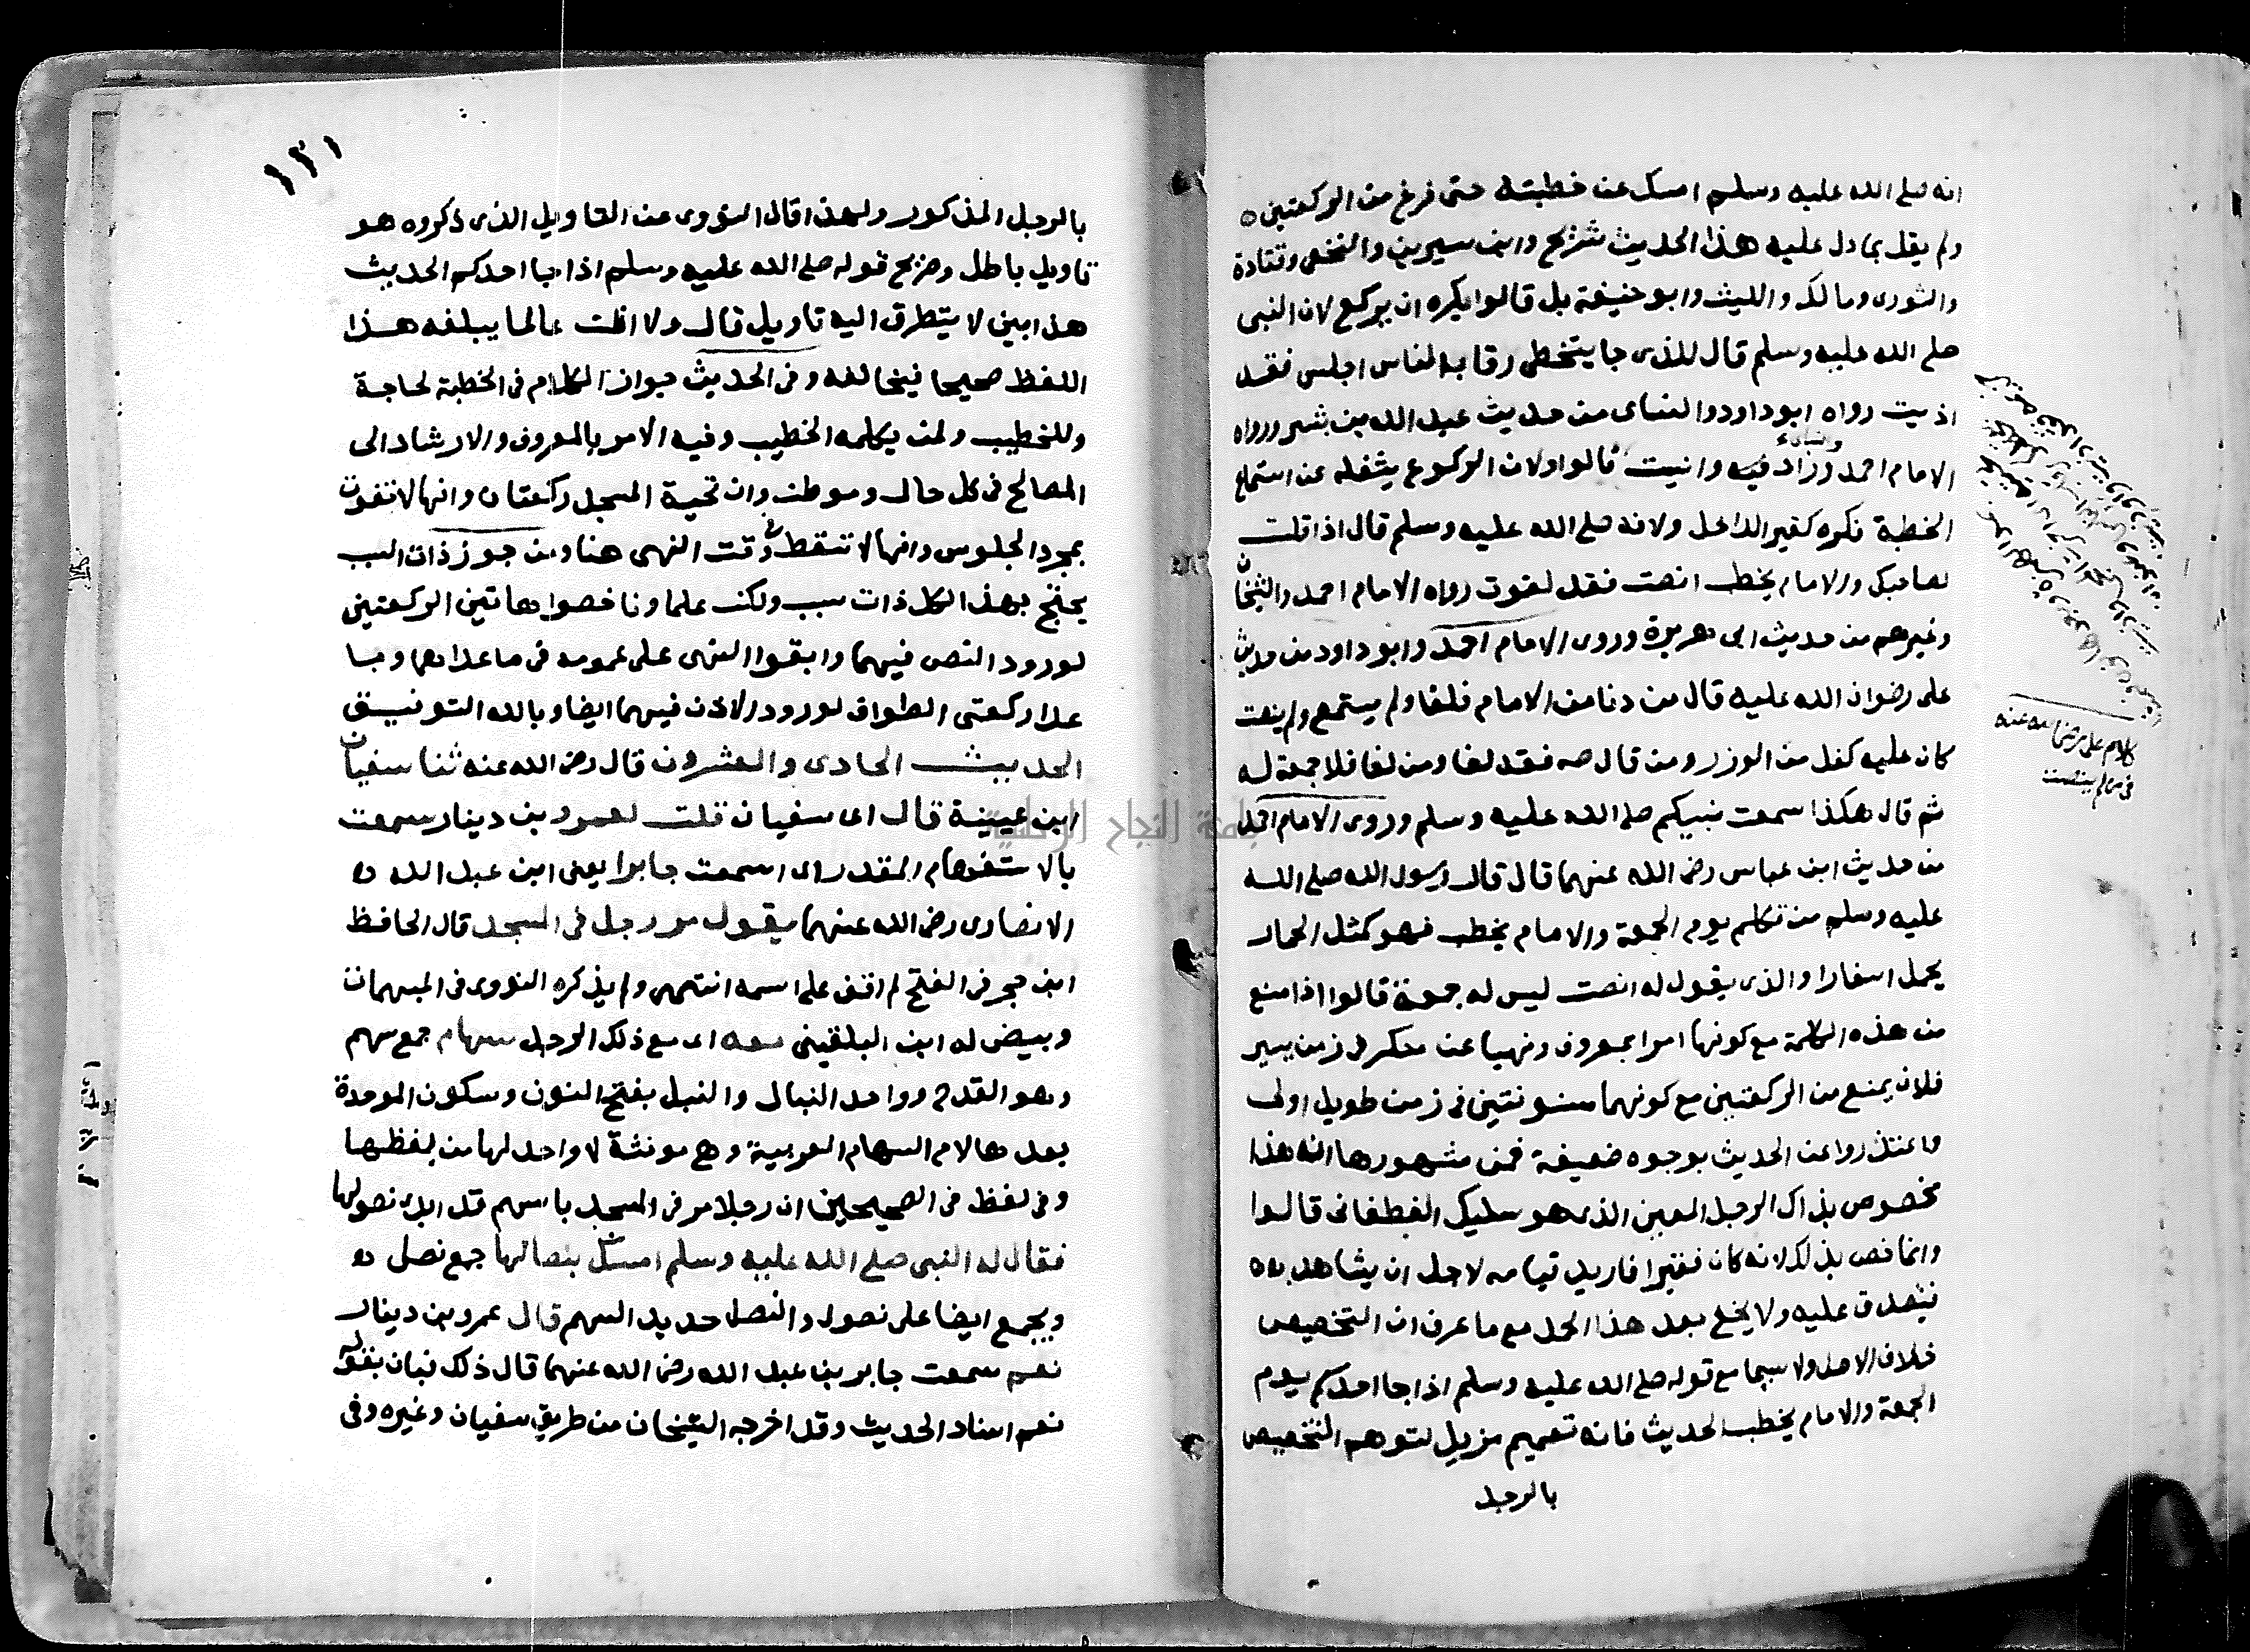 انه صلى الله عليه وسلم امسك عن خطبته حتى فرغ من الركعتين ه
ولم يقل بما دل عليه هذا الحديث شريح وابن سيرين والنخعي وقتادة
والثورى ومالك والليث وابو حنيفة بل قالوا يكره ان يركع لان النبى
صلى الله عليه وسلم قال للذى جا يتخطى رقاب الناس اجلس فقد
اذيت رواه ابو داود والنساى من حديث عبد الله بن بشر ورواه
الامام احمد وزاد فيه وانيت قالوا ولان الركوع يشغله عن استماع
الخطبة فكره كغير الداخل ولانه صلى الله عليه وسلم قال اذا قلت
لصاحبك والامام يخطب انصت فقد لغوت رواه الامام احمد والشيخان
وغيرهم من حديث ابى هريرة وروى الامام احمد وابو داود من حديث
على رضوان الله عليه قال من دنا من الامام فلغا ولم يستمع ولم ينصت
كان عليه كفل من الوزر ومن قال صه فقد لغا ومن لغا فلا جمعة له
ثم قال هكذا سمعت نبيكم صلى الله عليه وسلم وروى الامام احمد
من حديث ابن عباس رضى الله عنهما قال قال رسول الله صلى الله
عليه وسلم من تكلم يوم الجمعة والامام يخطب فهو كمثل الحمار
يحمل اسفارا والذى يقول له انصت ليس له جمعة قالوا اذا منع
من هذه الكلمة مع كونها امرا بمعروف ونهيا عن منكر فى زمن يسير
فلان يمنع من الركعتين مع كونهما مسنونتين فى زمن طويل اولى
واعتذروا عن الحديث بوجوه ضعيفة فمن مشهورها انه هذا
مخصوص بذاك الرجل المعين الذى هو سليك الغطفانى قالوا
وانما خص بذلك لانه كان فقيرا فاريد قيامه لاجل ان يشاهدوه
فيتصدق عليه ولا يخفى بعد هذا الحد مع ما عرف ان التخصيص
خلاف الاصل ولا سيما مع قوله صلى الله عليه وسلم اذا جا احدكم يوم
الجمعة والامام يخطب الحديث فانه تعميم مزيل لتوهم التخصيص
بالرجل
كلام على رضى الله عنه
فى من لم ينصت
١٣١
بالرجل المذكور ولهذا قال النووى عن التاويل الذى ذكروه هو
تاويل باطل وصريح قوله صلى الله عليه وسلم اذا جا احدكم الحديث
هذا بين لا يتطرق اليه تاويل قال ولا اظن عالما يبلغه هذا
اللفظ صحيحا فيخالفه وفى الحديث جواز الكلام فى الخطبة لحاجة
وللخطيب ولمن يكلمه الخطيب وفيه الامر بالمعروف والارشاد الى
المصالح فى كل حال وموطن وان تحية المسجد ركعتان وانها لا تفوت
بمجرد الجلوس وانها لا تسقط فى وقت النهى هنا ومن جوز ذات السبب
يحتج بهذا لكل ذات سبب ولكن علماونا خصوا هاتين الركعتين
لورود النص فيهما وابقوا النهى على عمومه فى ما عداهما وما
عدا ركعتى الطواف لورود الاذن فيهما ايضا وبالله التوفيق
الحديث الحادى والعشرون قال رضى الله عنه ثنا سفيان
ابن عيينة قال اى سفيان قلت لعمرو بن دينار سمعت
بالاستفهام المقدر اى اسمعت جابرا يعنى ابن عبد الله ه
الانصارى رضى الله عنهما يقول مر رجل فى المسجد قال الحافظ
ابن حجر فى الفتح لم اقف على اسمه انتهى ولم يذكره النووى فى المبهمات
وبيض له ابن البلقينى معه اى مع ذلك الرجل سهام جمع سهم
وهو القدح وواحد النبال والنبل بفتح النون وسكون الموحدة
بعدها لام السهام العربية وهى مونثة لا واحد لها من لفظها
وفى لفظ فى الصحيحين ان رجلا مر فى المسجد باسهم قد ابدى نصولها
فقال له النبى صلى الله عليه وسلم امسك بنصالها جمع نصل ه
ويجمع ايضا على نصول والنصل حديد السهم قال عمرو بن دينار
نعم سمعت جابر بن عبد الله رضى الله عنهما قال ذلك فبان بقوله
نعم اسناد الحديث وقد اخرجه الشيخان من طريق سفيان وغيره وفى